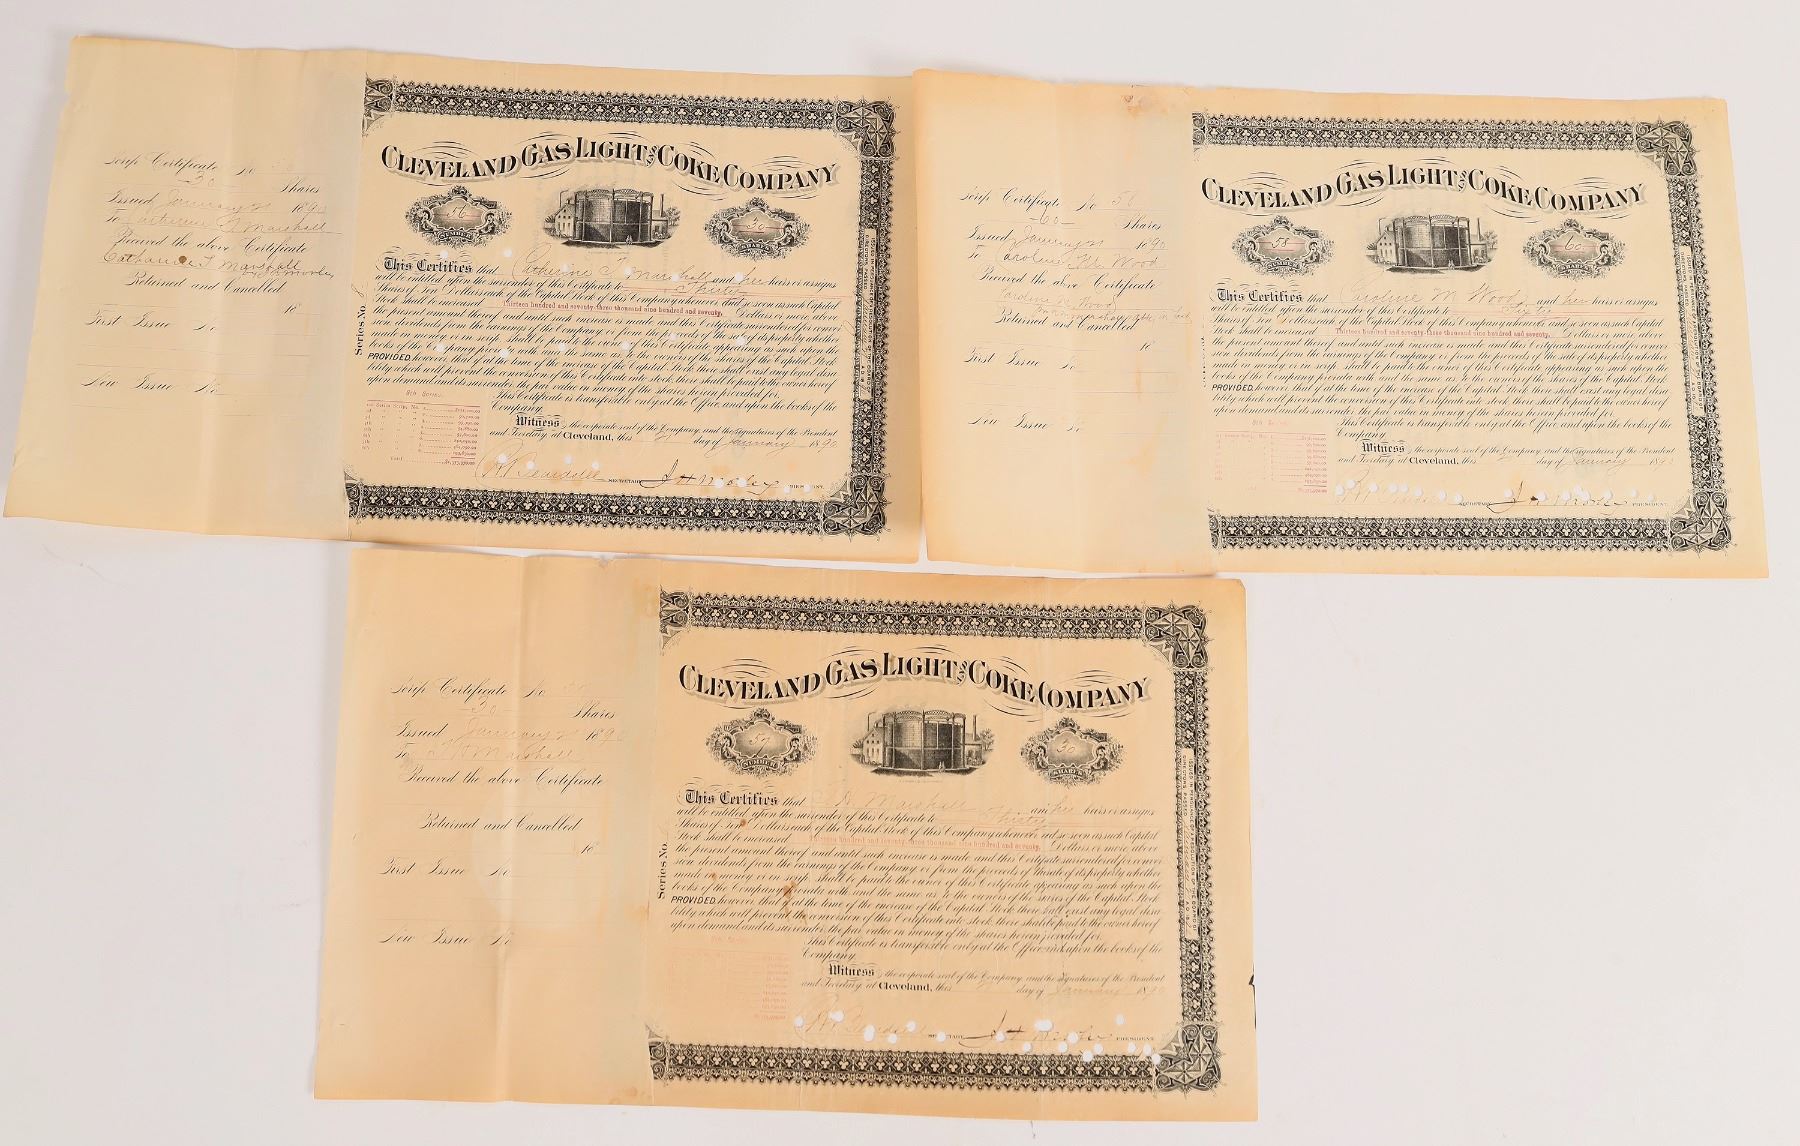 Scrip Certificate No 56
30 Shares
Issued January 21 1890
To Catherine T Marshall
Received the above Certificate
Catharine T Marshall
Returned and Cancelled
18
First Issue No
New Issue No
CLEVELAND GAS LIGHT AND COKE COMPANY
56
NUMBER
30
SHARES
Series No.
This Certifies that Catherine T. Marshall and her heirs or assigns
will be entitled upon the surrender of this Certificate to Thirty
Shares of Ten Dollars each of the Capital Stock of this Company whenever and so soon as such Capital
Stock shall be increased Thirteen hundred and seventy-three thousand nine hundred and seventy. Dollars or more above
the present amount thereof and until such increase is made and this Certificate surrendered for conver
sion dividends from the earnings of the Company or from the proceeds of the sale of its property whether
made in money or in scrip shall be paid to the owner of this Certificate appearing as such upon the
books of the Company prorata with and the same as to the owners of the shares of the Capital Stock
PROVIDED, however, that if at the time of the increase of the Capital Stock there shall exist any legal disa
bility which will prevent the conversion of this Certificate into stock there shall be paid to the owner hereof
upon demand and its surrender the par value in money of the shares herein provided for.
This Certificate is transferable only at the Office and upon the books of the
Company.
8th Series.
Witness, the corporate seal of the Company, and the signatures of the President
and Secretary at Cleveland, this 21 day of January 1890
SECRETARY J H Morley PRESIDENT.
Scrip Certificate No 58
60 Shares
Issued January 21 1890
To Caroline M Wood
Received the above Certificate
Caroline M Wood
Returned and Cancelled
18
First Issue No
New Issue No
CLEVELAND GAS LIGHT AND COKE COMPANY
58
NUMBER
60
SHARES
This Certifies that Caroline M Wood and her heirs or assigns
will be entitled upon the surrender of this Certificate to Sixty
Shares of Ten Dollars each of the Capital Stock of this Company whenever and so soon as such Capital
Stock shall be increased Thirteen hundred and seventy-three thousand nine hundred and seventy. Dollars or more above
the present amount thereof and until such increase is made and this Certificate surrendered for conver
sion dividends from the earnings of the Company or from the proceeds of the sale of its property whether
made in money or in scrip shall be paid to the owner of this Certificate appearing as such upon the
books of the Company prorata with and the same as to the owners of the shares of the Capital Stock
PROVIDED, however, that if at the time of the increase of the Capital Stock there shall exist any legal disa
bility which will prevent the conversion of this Certificate into stock there shall be paid to the owner hereof
upon demand and its surrender the par value in money of the shares herein provided for.
This Certificate is transferable only at the Office and upon the books of the
Company.
8th Series.
Witness, the corporate seal of the Company, and the signatures of the President
and Secretary at Cleveland, this 21 day of January 1890
SECRETARY J H Morley PRESIDENT.
Scrip Certificate No
30 Shares
Issued January 21 1890
To Marshall
Received the above Certificate
Returned and Cancelled
18
First Issue No
New Issue No
CLEVELAND GAS LIGHT AND COKE COMPANY
57
NUMBER
30
SHARES
Series No.
This Certifies that Marshall and heirs or assigns
will be entitled upon the surrender of this Certificate to Thirty
Shares of Ten Dollars each of the Capital Stock of this Company whenever and so soon as such Capital
Stock shall be increased Thirteen hundred and seventy-three thousand nine hundred and seventy. Dollars or more above
the present amount thereof and until such increase is made and this Certificate surrendered for conver
sion dividends from the earnings of the Company or from the proceeds of the sale of its property whether
made in money or in scrip shall be paid to the owner of this Certificate appearing as such upon the
books of the Company prorata with and the same as to the owners of the shares of the Capital Stock
PROVIDED, however, that if at the time of the increase of the Capital Stock there shall exist any legal disa
bility which will prevent the conversion of this Certificate into stock there shall be paid to the owner hereof
upon demand and its surrender the par value in money of the shares herein provided for.
This Certificate is transferable only at the Office and upon the books of the
Company.
Witness, the corporate seal of the Company, and the signatures of the President
and Secretary at Cleveland, this 21 day of January 1890
SECRETARY J H Morley PRESIDENT.